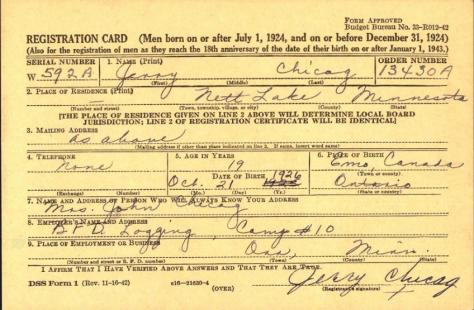 FORM APPROVED
Budget Bureau No. 33-R012-42
REGISTRATION CARD (Men born on or after July 1, 1924, and on or before December 31, 1924)
(Also for the registration of men as they reach the 18th anniversary of the date of their birth on or after January 1, 1943.)
SERIAL NUMBER 1. NAME (Print) ORDER NUMBER
W. 592A Jerry Chicag 13430A
(First) (Middle) (Last)
2. PLACE OF RESIDENCE (Print)
Nett Lake Minnesota
(Number and street) (Town, township, village, or city) (County) (State)
[THE PLACE OF RESIDENCE GIVEN ON LINE 2 ABOVE WILL DETERMINE LOCAL BOARD
JURISDICTION; LINE 2 OF REGISTRATION CERTIFICATE WILL BE IDENTICAL]
3. MAILING ADDRESS
as above
(Mailing address if other than place indicated on line 2. If same, insert word same)
4. TELEPHONE 5. AGE IN YEARS 6. PLACE OF BIRTH
none 19 Emo, Canada
DATE OF BIRTH 1926 (Town or county)
Oct. 21 Ontario
(Exchange) (Number) (Mo.) (Day) (Yr.) (State or country)
7. NAME AND ADDRESS OF PERSON WHO WILL ALWAYS KNOW YOUR ADDRESS
Mrs. John Chicag
8. EMPLOYER'S NAME AND ADDRESS
B.F.D. Logging Camp #10
9. PLACE OF EMPLOYMENT OR BUSINESS
Orr, Minn.
(Number and street or R. F. D. number) (Town) (County) (State)
I AFFIRM THAT I HAVE VERIFIED ABOVE ANSWERS AND THAT THEY ARE TRUE.
DSS Form 1 (Rev. 11-16-42) 16-21630-4 Jerry Chicag
(OVER) (Registrant's signature)